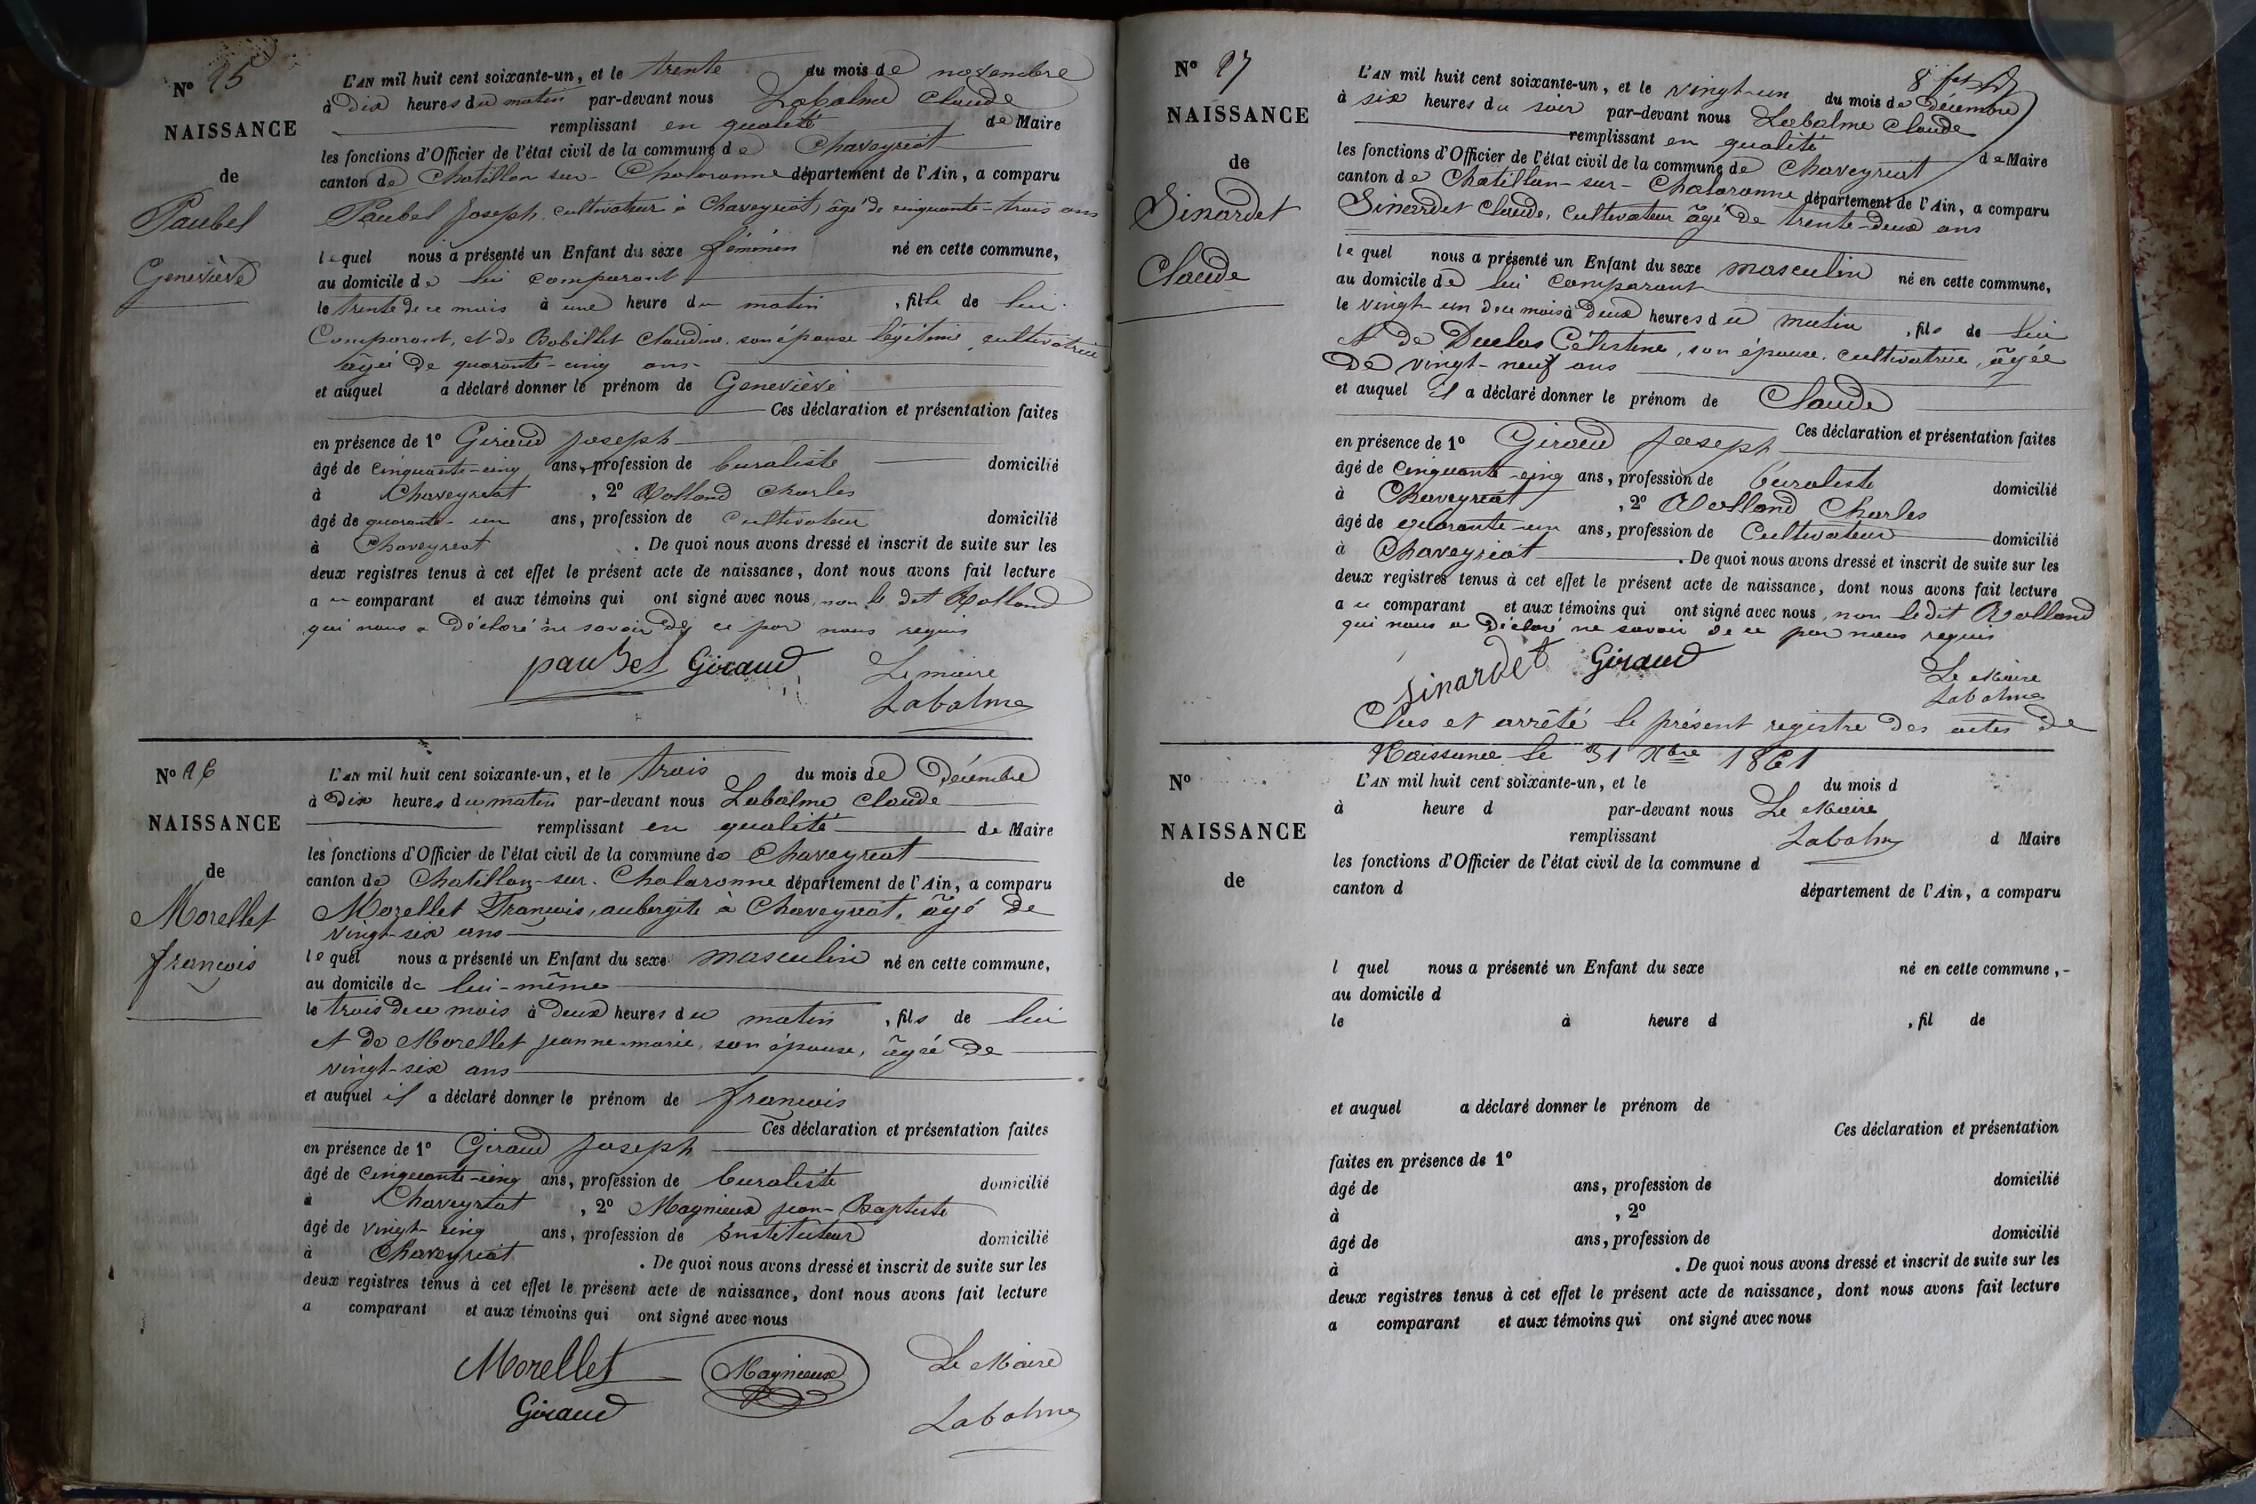 N° 25
NAISSANCE
de
Paubel
Geneviève
L'AN mil huit cent soixante-un, et le trente du mois de novembre
à dix heures du matin par-devant nous Labalme Claude
remplissant en qualité de Maire
les fonctions d'Officier de l'état civil de la commune de Chaveyriat
canton de Chatillon sur-Chalaronne département de l'Ain, a comparu
Paubel Joseph, cultivateur à Chaveyriat, âgé de cinquante-trois ans
lequel nous a présenté un Enfant du sexe féminin né en cette commune,
au domicile de lui comparant
le trente de ce mois à une heure du matin, fille de lui
Comparant, et de Bobillet Claudine, son épouse légitime, cultivatrice
âgée de quarante-cinq ans
et auquel a déclaré donner le prénom de Geneviève
Ces déclaration et présentation faites
en présence de 1° Giraud Joseph
âgé de cinquante-cinq ans, profession de buraliste domicilié
à Chaveyriat, 2° Rolland Charles
âgé de quarante-un ans, profession de cultivateur domicilié
à Chaveyriat. De quoi nous avons dressé et inscrit de suite sur les
deux registres tenus à cet effet le présent acte de naissance, dont nous avons fait lecture
au comparant et aux témoins qui ont signé avec nous, non le dit Rolland
qui nous a déclaré ne savoir de ce par nous requis
paubel Giraud Le maire
Labalme
N° 26
NAISSANCE
de
Morellet
françois
L'AN mil huit cent soixante-un, et le trois du mois de Décembre
à Dix heures du matin par-devant nous Labalme Claude
remplissant en qualité de Maire
les fonctions d'Officier de l'état civil de la commune de Chaveyriat
canton de Chatillon-sur-Chalaronne département de l'Ain, a comparu
Morellet François, aubergite à Chaveyriat, âgé de
vingt-six ans
lequel nous a présenté un Enfant du sexe masculin né en cette commune,
au domicile de lui-même
le trois de ce mois à Deux heures du matin, fils de lui
et de Morellet jeanne-marie, son épouse, âgée de
vingt-six ans
et auquel il a déclaré donner le prénom de françois
Ces déclaration et présentation faites
en présence de 1° Giraud Joseph
âgé de cinquante-cinq ans, profession de buraliste domicilié
à Chaveyriat, 2° Magnieux jean-Baptiste
âgé de vingt-cinq ans, profession de Instituteur domicilié
à Chaveyriat. De quoi nous avons dressé et inscrit de suite sur les
deux registres tenus à cet effet le présent acte de naissance, dont nous avons fait lecture
a comparant et aux témoins qui ont signé avec nous
Morellet Magnieux Le Maire
Giraud Labalme
N° 27
NAISSANCE
de
Sinardet
Claude
L'AN mil huit cent soixante-un, et le vingt-un du mois de Décembre
à six heures du soir par-devant nous Labalme Claude
remplissant en qualité de Maire
les fonctions d'Officier de l'état civil de la commune de Chaveyriat
canton de Chatillon-sur-Chalaronne département de l'Ain, a comparu
Sinardet Claude, Cultivateur âgé de trente-deux ans
lequel nous a présenté un Enfant du sexe masculin né en cette commune,
au domicile de lui comparant
le vingt-un de ce mois à Deux heures du matin, fils de lui
et de Duclos Célestine, son épouse, cultivatrice, âgée
De vingt-neuf ans
et auquel il a déclaré donner le prénom de Claude
Ces déclaration et présentation faites
en présence de 1° Giraud Joseph
âgé de cinquante-cinq ans, profession de buraliste domicilié
à Chaveyriat, 2° Rolland Charles
âgé de quarante-un ans, profession de Cultivateur domicilié
à Chaveyriat. De quoi nous avons dressé et inscrit de suite sur les
deux registres tenus à cet effet le présent acte de naissance, dont nous avons fait lecture
au comparant et aux témoins qui ont signé avec nous, non ledit Rolland
qui nous a Déclaré ne savoir de ce par nous requis
Sinardet Giraud Le Maire
Labalme
Clos et arrêté le présent registre des actes de
Naissance le 31 Xbre 1861
N°
NAISSANCE
de
L'AN mil huit cent soixante-un, et le du mois d
à heure d par-devant nous Le Maire
remplissant Labalme d Maire
les fonctions d'Officier de l'état civil de la commune d
canton d département de l'Ain, a comparu
l quel nous a présenté un Enfant du sexe né en cette commune,
au domicile d
le à heure d, fil de
et auquel a déclaré donner le prénom de
Ces déclaration et présentation
faites en présence de 1°
âgé de ans, profession de domicilié
à , 2°
âgé de ans, profession de domicilié
à . De quoi nous avons dressé et inscrit de suite sur les
deux registres tenus à cet effet le présent acte de naissance, dont nous avons fait lecture
a comparant et aux témoins qui ont signé avec nous